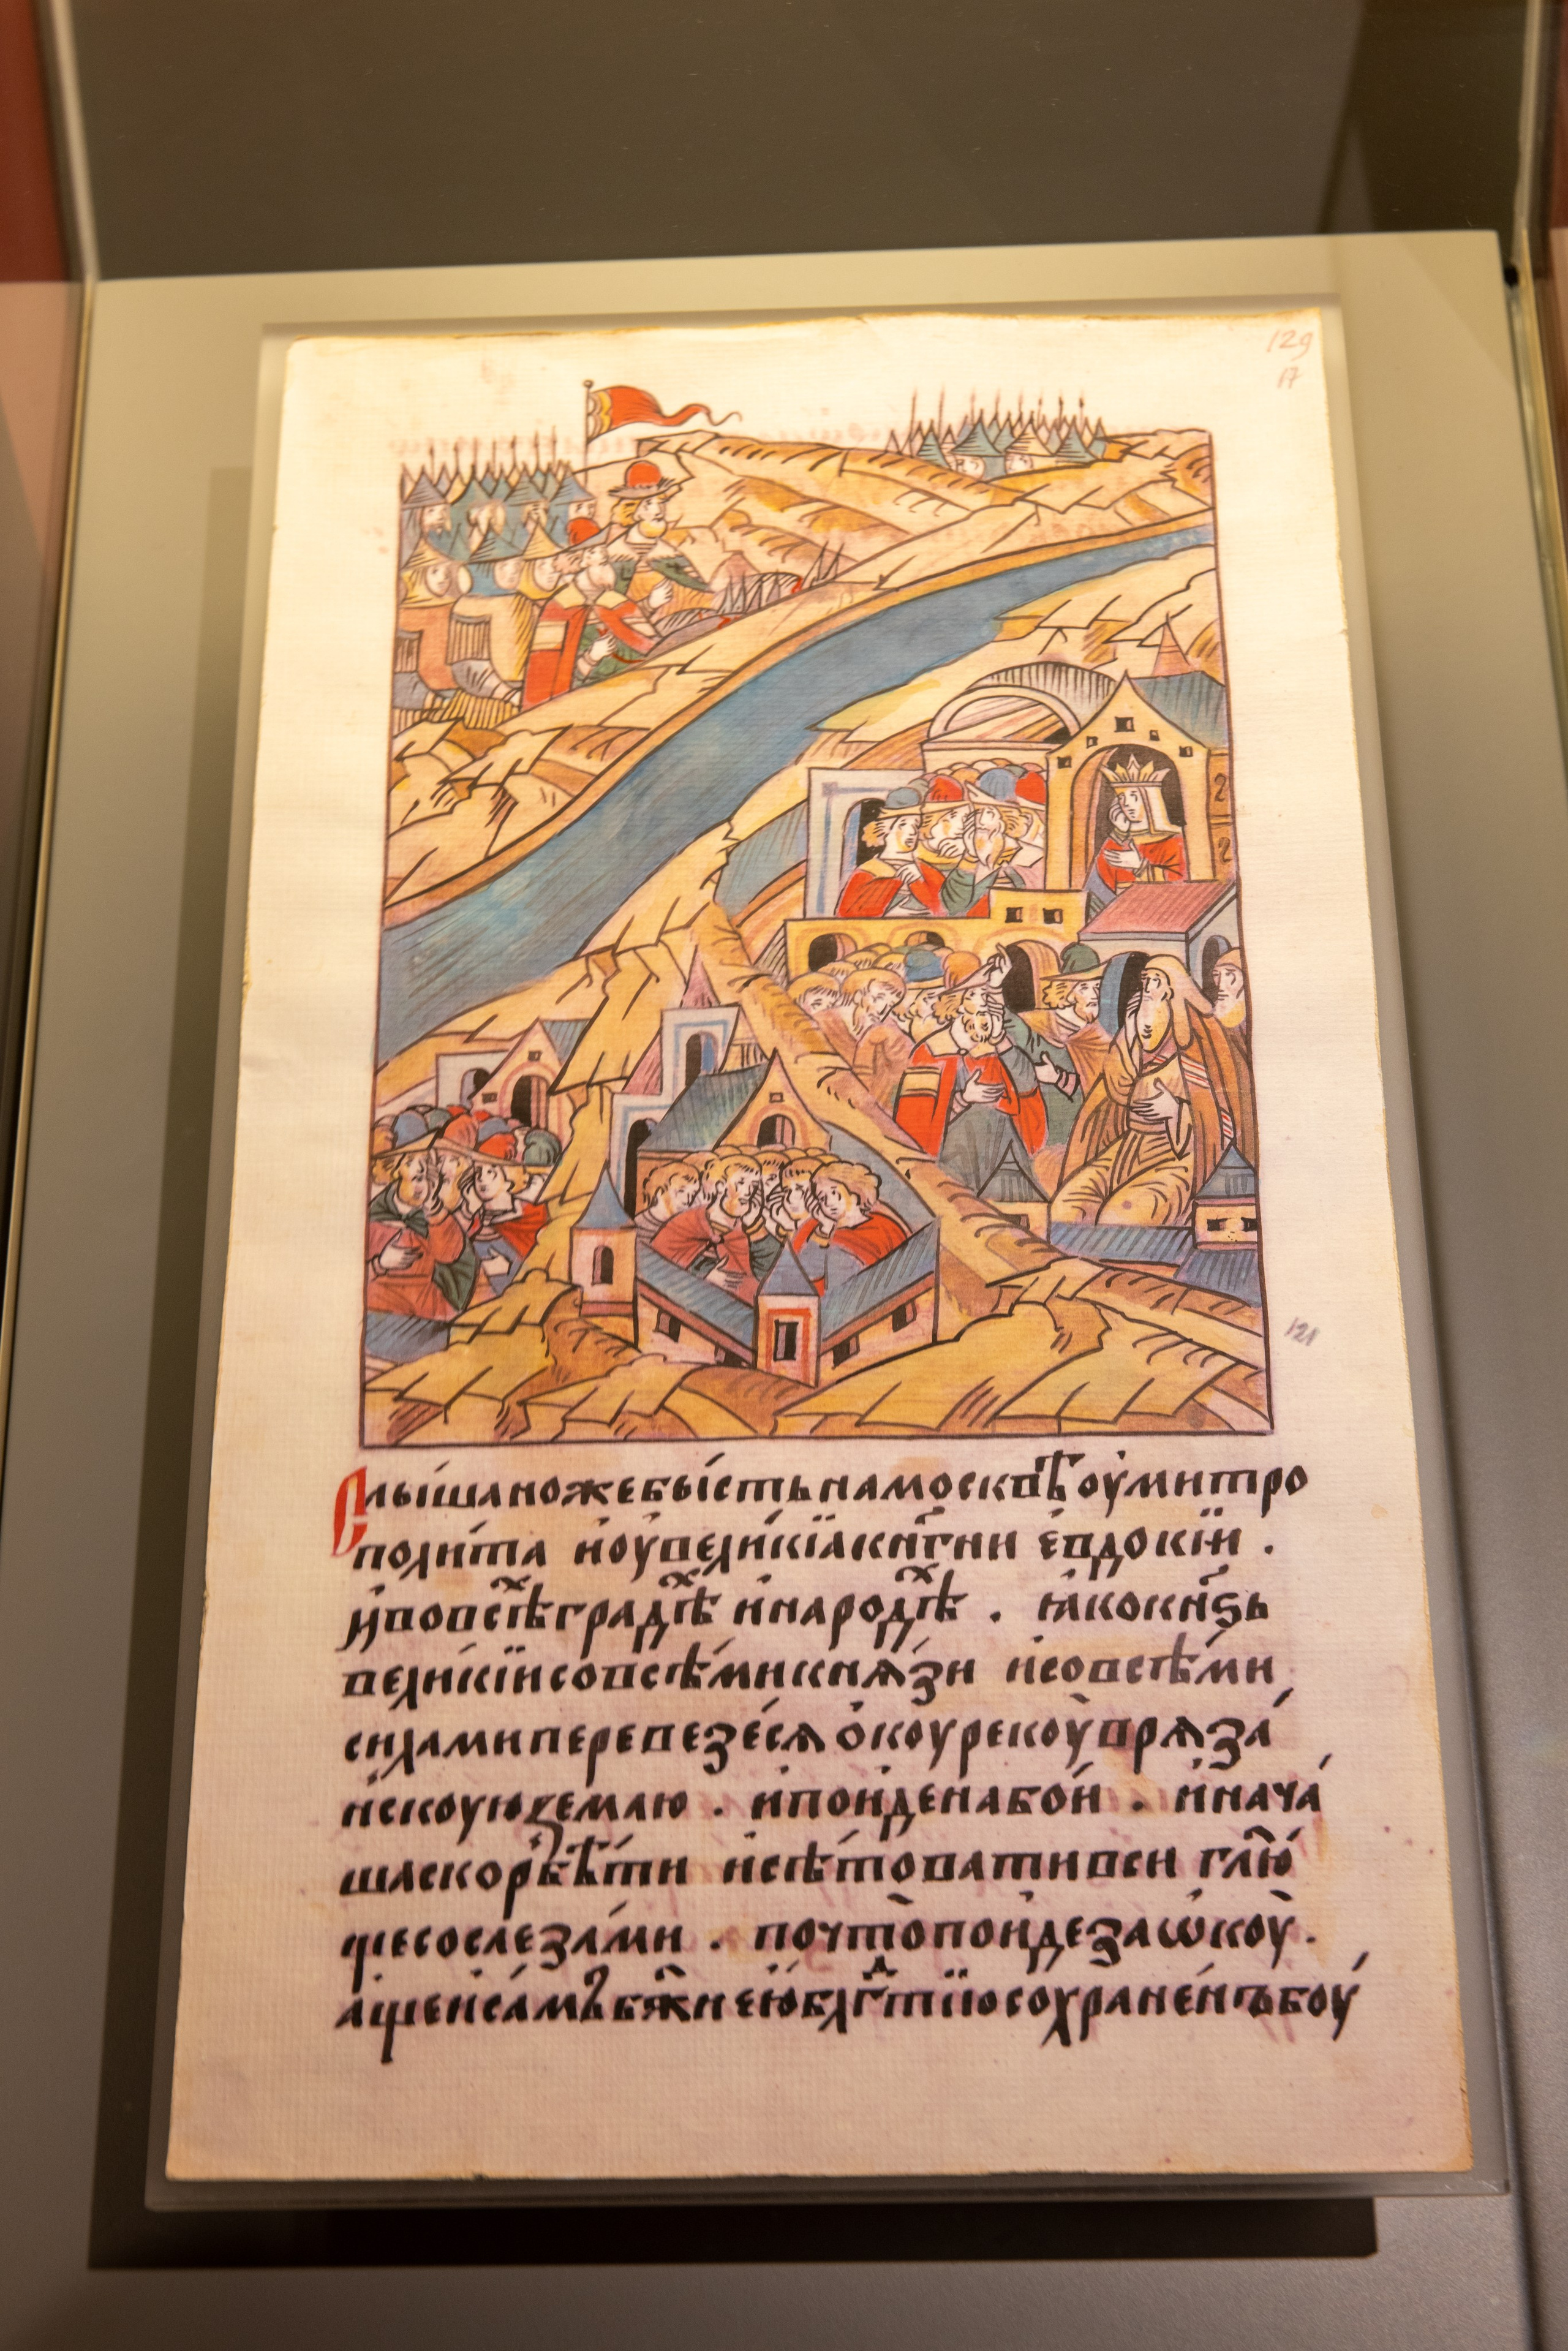 129
17
121
Слы́шано же бы́сть на москвѣ̀ оу́ митро
поли́та и҆ оу҆ вели́кїѧ кн҃гни є҆вдокі́и .
и҆ по все́мъ градѣⷯ и҆ наро́дѣⷯ . ꙗ҆́ко кн҃ѕь
вели́кїи со всѣ́ми кнѧ́зи и҆ со всѣ́ми
си́лами перевезе́сѧ о҆коу̀ рекоу̀ в рѧза́
нскоую землю . и҆ пои́де на бои́ . и҆ нача́
ша скорбѣ́ти и҆ сѣ́товати вси гл҃ю́
ще со слеза́ми . почто̀ поиде за ѡ҆коу̀ .
а́ще и҆ са́мъ бж҃иею бл҃гⷣтїю сохране́нъ боу́